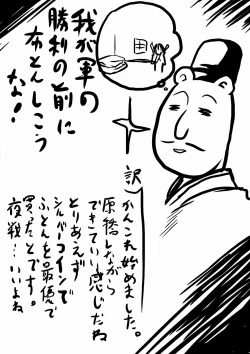 我が軍の
勝利の前に
布とんしこう
な！
訳）かんこれ始めました。
原稿しながら
できていい感じだね
とりあえず
シルバーコインで
ふとんを最優で
買ったとです。
夜戦…いいよね